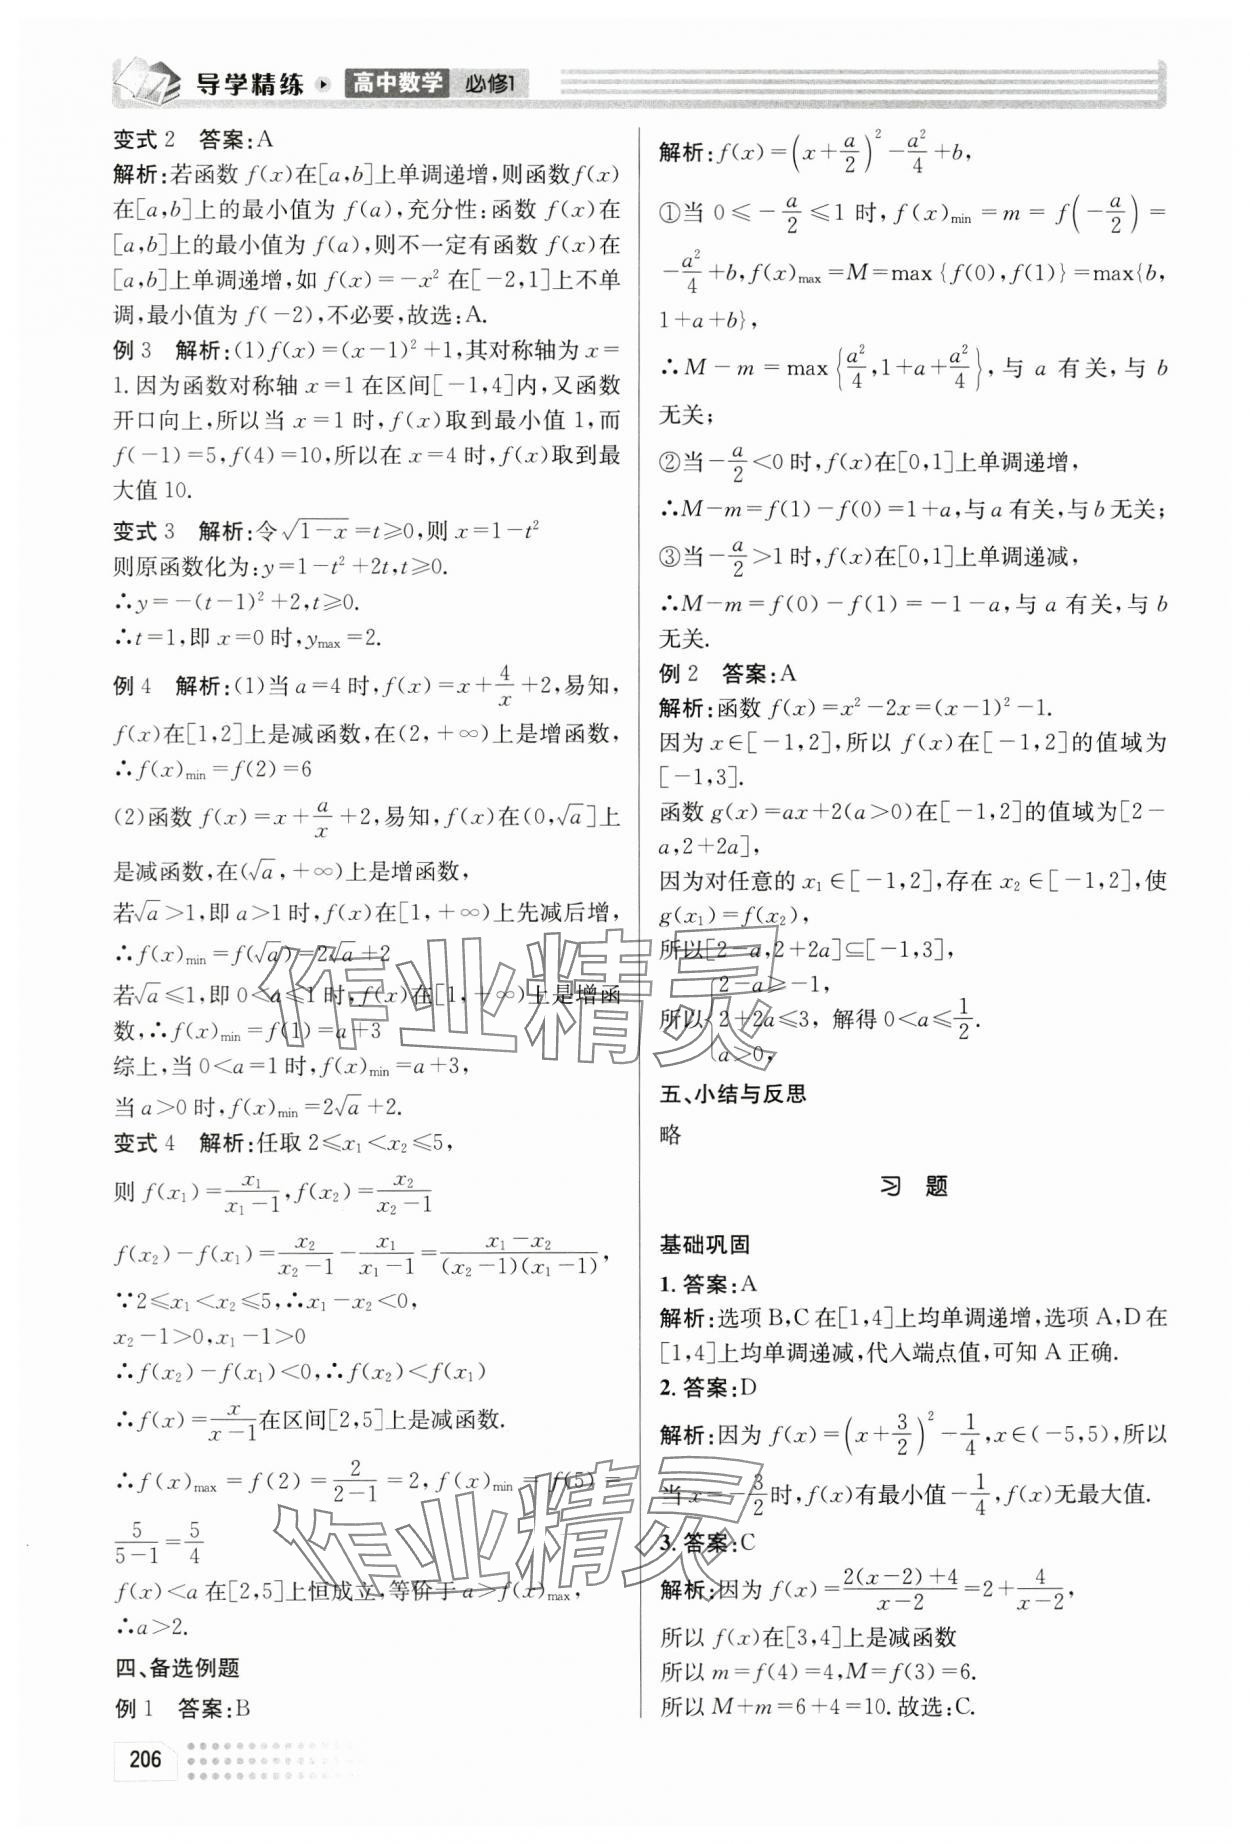 导学精练 高中数学 必修1
变式2 答案:A
解析:若函数 f(x)在[a,b]上单调递增,则函数f(x)
在[a,b]上的最小值为 f(a),充分性:函数 f(x)在
[a,b]上的最小值为 f(a),则不一定有函数 f(x)在
[a,b]上单调递增,如 f(x)=-x²在[-2,1]上不单
调,最小值为 f(-2),不必要,故选:A.
例3 解析:(1)f(x)=(x-1)²+1,其对称轴为 x=
1.因为函数对称轴 x=1在区间[-1,4]内,又函数
开口向上,所以当 x=1时,f(x)取到最小值1,而
f(-1)=5,f(4)=10,所以在 x=4时,f(x)取到最
大值10.
变式3 解析:令√(1-x)=t≥0,则 x=1-t²
则原函数化为:y=1-t²+2t,t≥0.
∴y=-(t-1)²+2,t≥0.
∴t=1,即 x=0时,y_max=2.
例4 解析:(1)当 a=4时,f(x)=x+4/x+2,易知,
f(x)在[1,2]上是减函数,在(2,+∞)上是增函数,
∴f(x)_min=f(2)=6
(2)函数 f(x)=x+a/x+2,易知,f(x)在(0,√a]上
是减函数,在(√a,+∞)上是增函数,
若√a>1,即 a>1时,f(x)在[1,+∞)上先减后增,
∴f(x)_min=f(√a)=2√a+2
若√a≤1,即 0<a≤1时,f(x)在[1,+∞)上是增函
数,∴f(x)_min=f(1)=a+3
综上,当 0<a=1时,f(x)_min=a+3,
当 a>0时,f(x)_min=2√a+2.
变式4 解析:任取2≤x₁<x₂≤5,
则 f(x₁)=x₁/(x₁-1),f(x₂)=x₂/(x₂-1)
f(x₂)-f(x₁)=x₂/(x₂-1)-x₁/(x₁-1)=(x₁-x₂)/((x₂-1)(x₁-1)),
∵2≤x₁<x₂≤5,∴x₁-x₂<0,
x₂-1>0,x₁-1>0
∴f(x₂)-f(x₁)<0,∴f(x₂)<f(x₁)
∴f(x)=x/(x-1)在区间[2,5]上是减函数.
∴f(x)_max=f(2)=2/(2-1)=2,f(x)_min=f(5)=
5/(5-1)=5/4
f(x)<a在[2,5]上恒成立,等价于 a>f(x)_max,
∴a>2.
四、备选例题
例1 答案:B
206
解析:f(x)=(x+a/2)²-a²/4+b,
①当 0≤-a/2≤1时,f(x)_min=m=f(-a/2)=
-a²/4+b,f(x)_max=M=max{f(0),f(1)}=max{b,
1+a+b},
∴M-m=max{a²/4,1+a+a²/4},与 a 有关,与 b
无关;
②当-a/2<0时,f(x)在[0,1]上单调递增,
∴M-m=f(1)-f(0)=1+a,与a有关,与b无关;
③当-a/2>1时,f(x)在[0,1]上单调递减,
∴M-m=f(0)-f(1)=-1-a,与 a 有关,与 b
无关.
例2 答案:A
解析:函数 f(x)=x²-2x=(x-1)²-1.
因为 x∈[-1,2],所以 f(x)在[-1,2]的值域为
[-1,3].
函数 g(x)=ax+2(a>0)在[-1,2]的值域为[2-
a,2+2a],
因为对任意的 x₁∈[-1,2],存在 x₂∈[-1,2],使
g(x₁)=f(x₂),
所以[2-a,2+2a]⊆[-1,3],
所以 {2-a≥-1, 2+2a≤3, a>0, 解得 0<a≤1/2.
五、小结与反思
略
习 题
基础巩固
1.答案:A
解析:选项B,C在[1,4]上均单调递增,选项A,D在
[1,4]上均单调递减,代入端点值,可知A正确.
2.答案:D
解析:因为 f(x)=(x+3/2)²-1/4,x∈(-5,5),所以
当 x=-3/2时,f(x)有最小值-1/4,f(x)无最大值.
3.答案:C
解析:因为 f(x)=(2(x-2)+4)/(x-2)=2+4/(x-2),
所以 f(x)在[3,4]上是减函数
所以 m=f(4)=4,M=f(3)=6.
所以 M+m=6+4=10.故选:C.
作业精灵
作业精灵